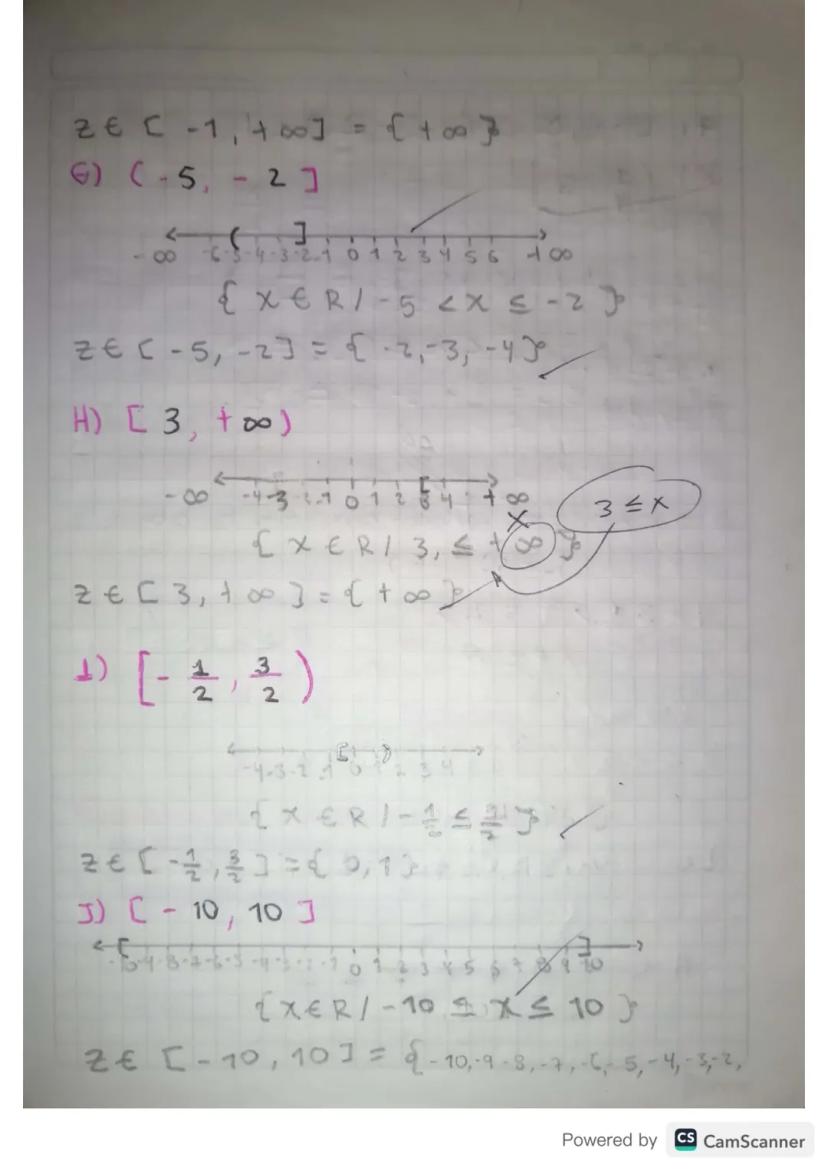 Z ∈ [ -1, +∞] = { +∞ }
G) ( -5, - 2 ]
-∞ -6 -5 -4 -3 -2 -1 0 1 2 3 4 5 6 +∞
{ x ∈ R / -5 < x ≤ -2 }
Z ∈ [ -5, -2 ] = { -2, -3, -4 }
H) [ 3, +∞ )
-∞ -4 -3 -2 -1 0 1 2 3 4 + ∞
3 ≤ x
x
{ x ∈ R / 3, ≤ +∞ }
Z ∈ [ 3, +∞ ] = { +∞ }
I) [ - 1/2 , 3/2 )
-4 -3 -2 -1 0 1 2 3 4
{ x ∈ R / - 1/2 ≤ 3/2 }
Z ∈ [ - 1/2 , 3/2 ] = { 0, 1 }
J) [ - 10, 10 ]
-10 -9 -8 -7 -6 -5 -4 -3 -2 -1 0 1 2 3 4 5 6 7 8 9 10
{ x ∈ R / -10 ≤ x ≤ 10 }
Z ∈ [ -10, 10 ] = { -10, -9 -8, -7, -6, -5, -4, -3, -2,
Powered by CS CamScanner